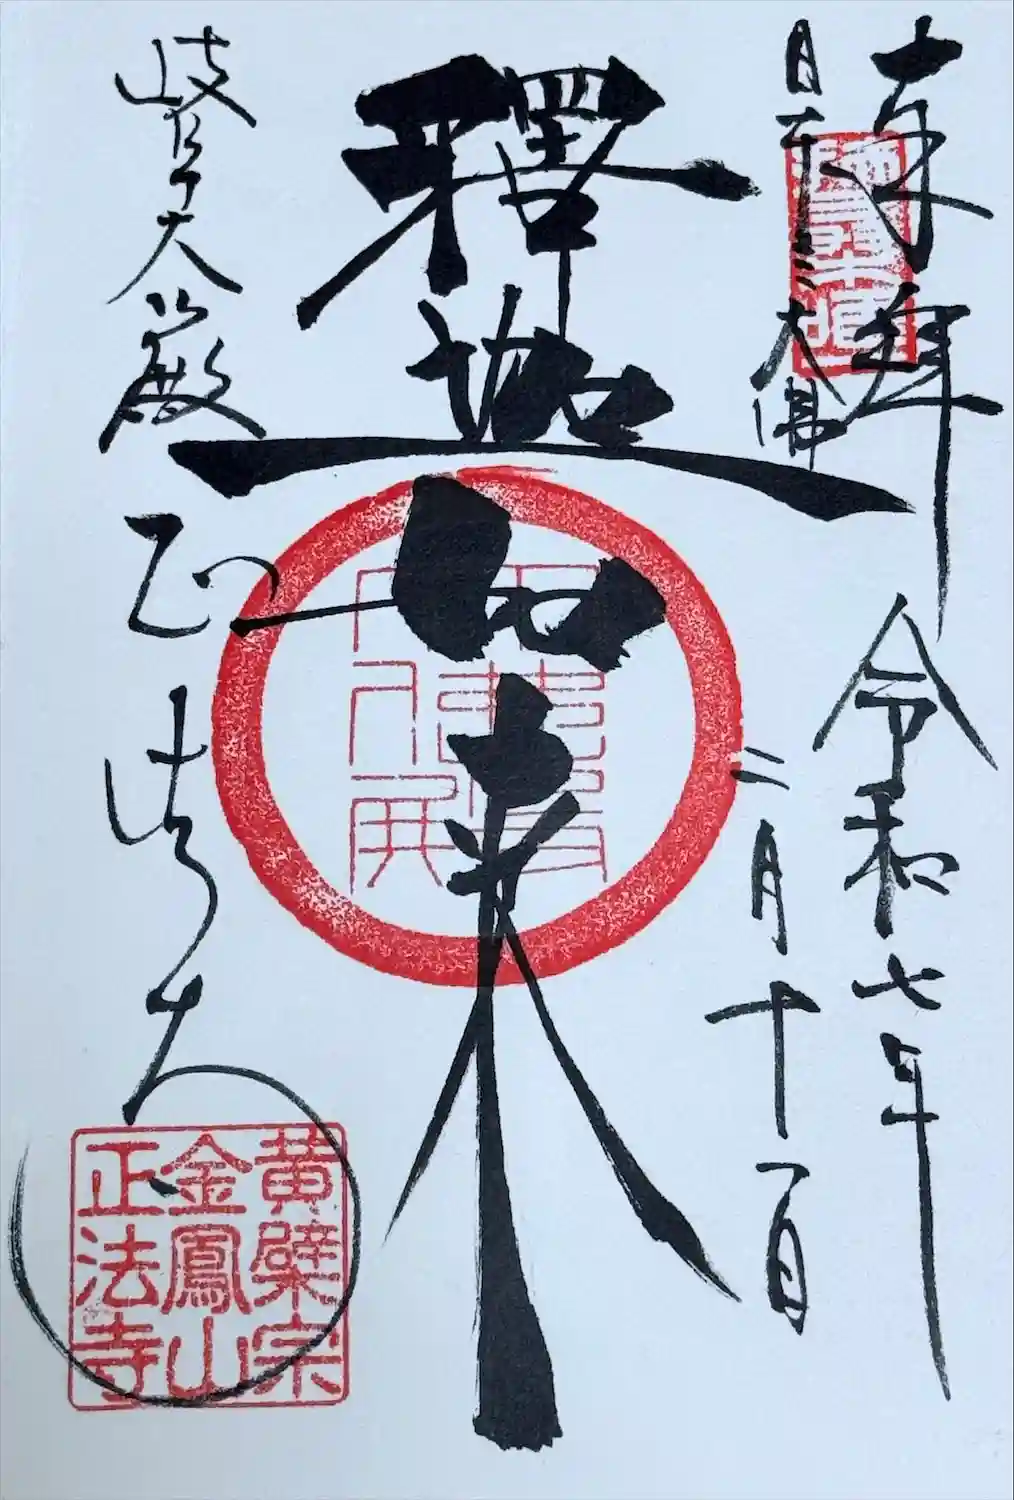 奉拝 令和七年
二月十一日
日本三大佛
釋迦如来
岐阜大殿 正法寺
黄檗宗
金鳳山
正法寺